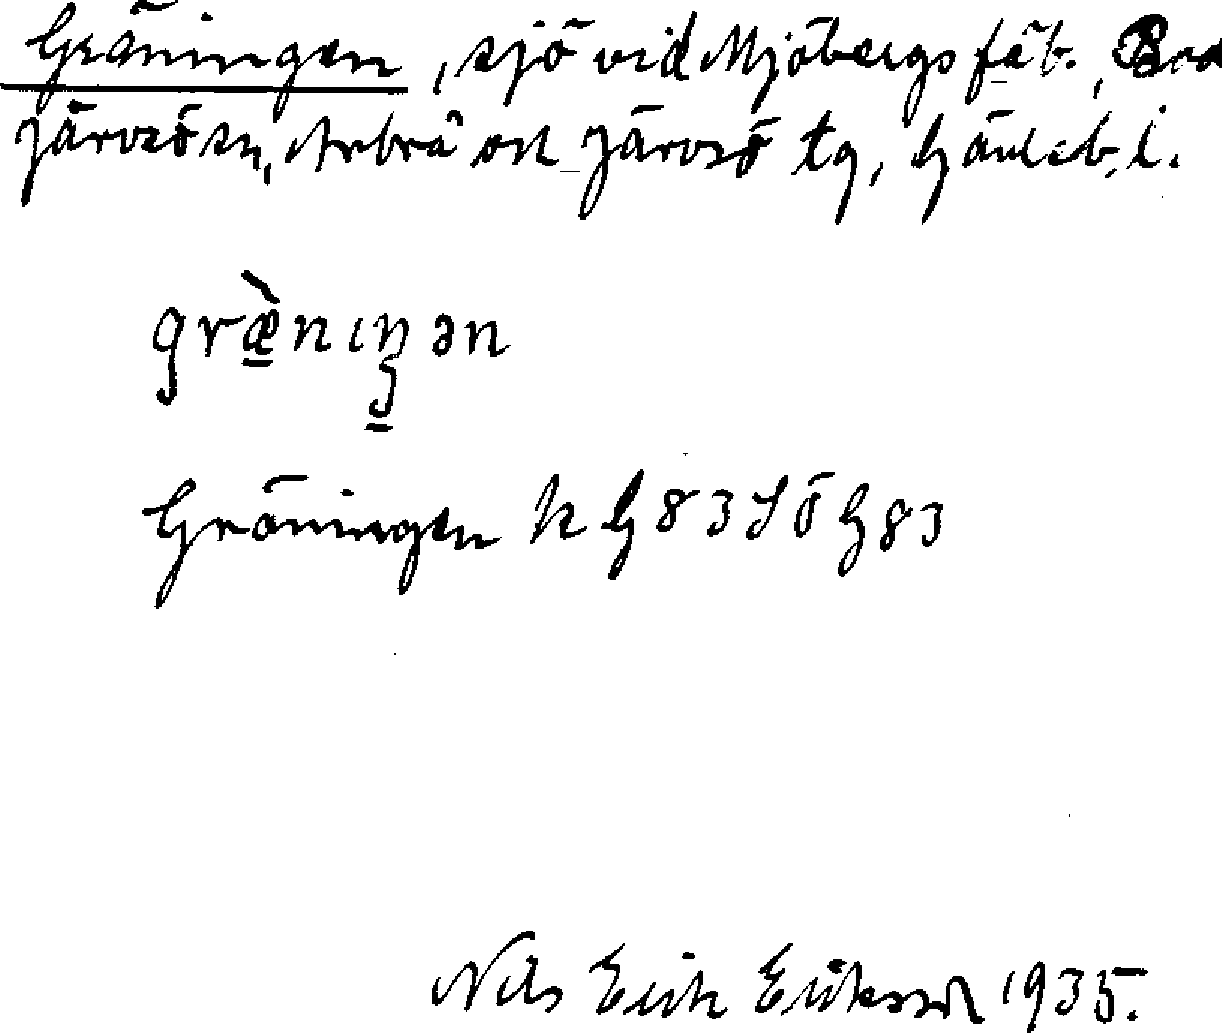 Gräningen, sjö vid Mjöbergs fäb.,
Järvsö sn, Arbrå och Järvsö tg, Gävleb. l.
græ̀nıŋən
Gröningen k G 83 Jö G 83
Nils Erik Eriksson 1935.